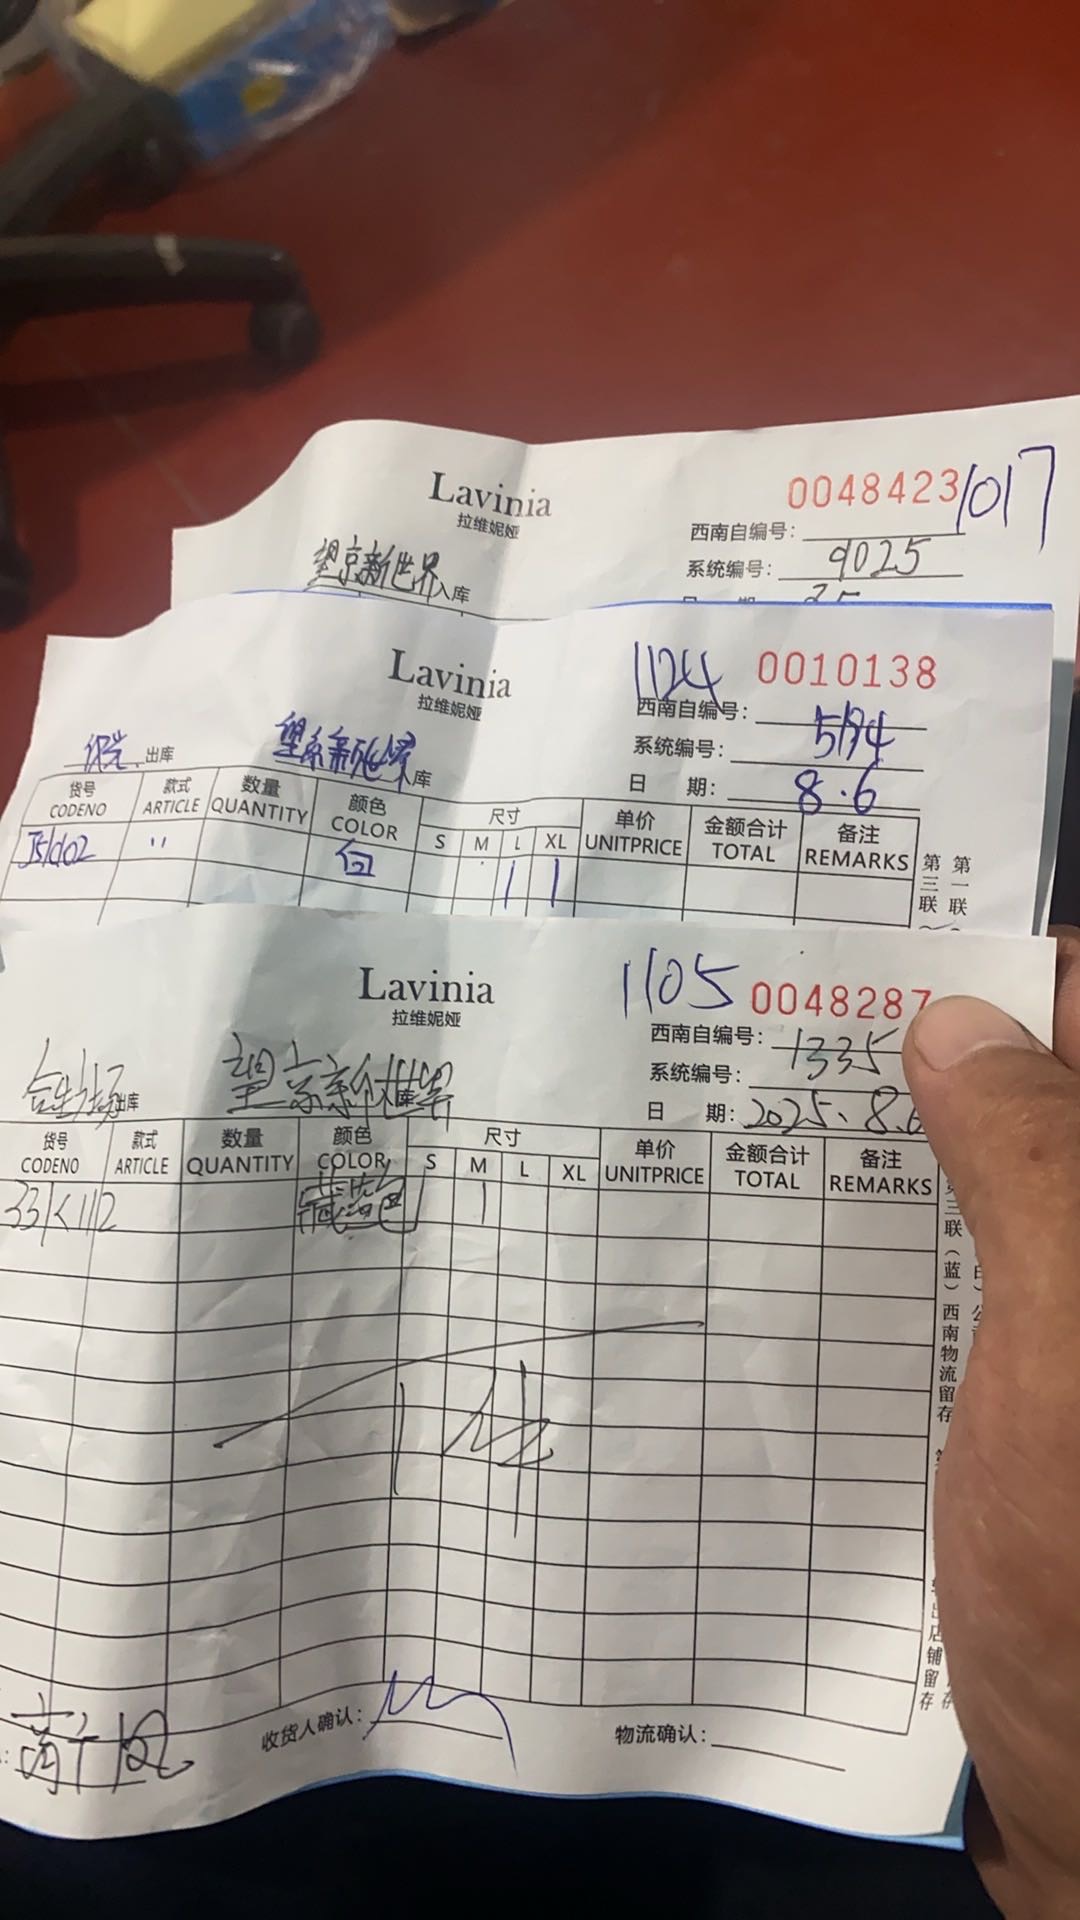 Lavinia
拉维妮娅
0048423 1017
西南自编号:
系统编号: 9025
望京新世界入库
Lavinia
拉维妮娅
1124 0010138
西南自编号:
系统编号: 5194
日 期: 8.6
出库 望京新世界入库
货号 CODENO 款式 ARTICLE 数量 QUANTITY 颜色 COLOR 尺寸 S M L XL 单价 UNITPRICE 金额合计 TOTAL 备注 REMARKS
白 1 1
第三联
第一联
Lavinia
拉维妮娅
1105 0048287
西南自编号: 1335
系统编号:
日 期: 2025.8.6
合生广场出库 望京新世界
货号 CODENO 款式 ARTICLE 数量 QUANTITY 颜色 COLOR 尺寸 S M L XL 单价 UNITPRICE 金额合计 TOTAL 备注 REMARKS
331K1112 藏蓝色 1
1件
第三联(蓝)西南物流留存
店铺留存
收货人确认:
物流确认: